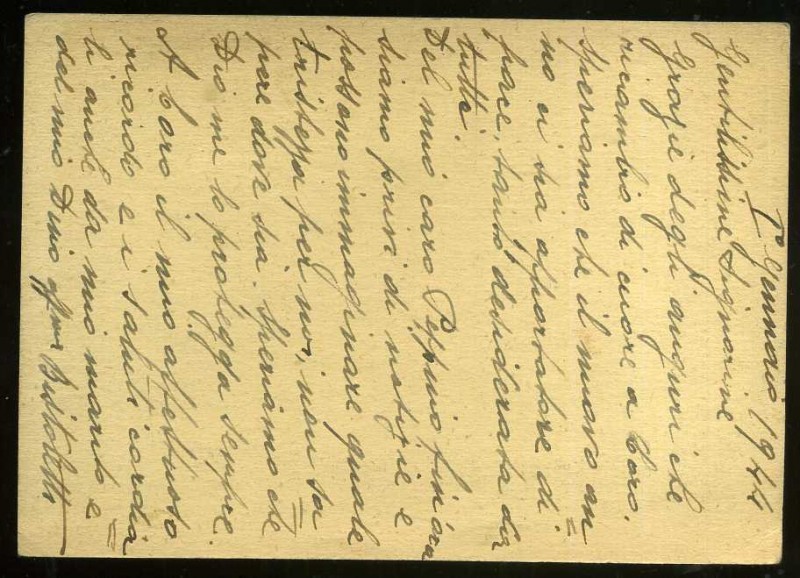 1º Gennaio 1944
Gentilissime Signorine
Grazie degli auguri che
ricambio di cuore a Loro.
Speriamo che il nuovo an=
no ci sia apportatore di
pace, tanto desiderata da
tutti.
Del mio caro Peppino finora
siamo privi di notizie e
possono immaginare quale
tristezza per noi, non sa=
pere dove sia. Speriamo che
Dio me lo protegga sempre.
A Loro il mio affettuoso
ricordo e i saluti cordia=
li anche da mio marito e
del mio Dino affma